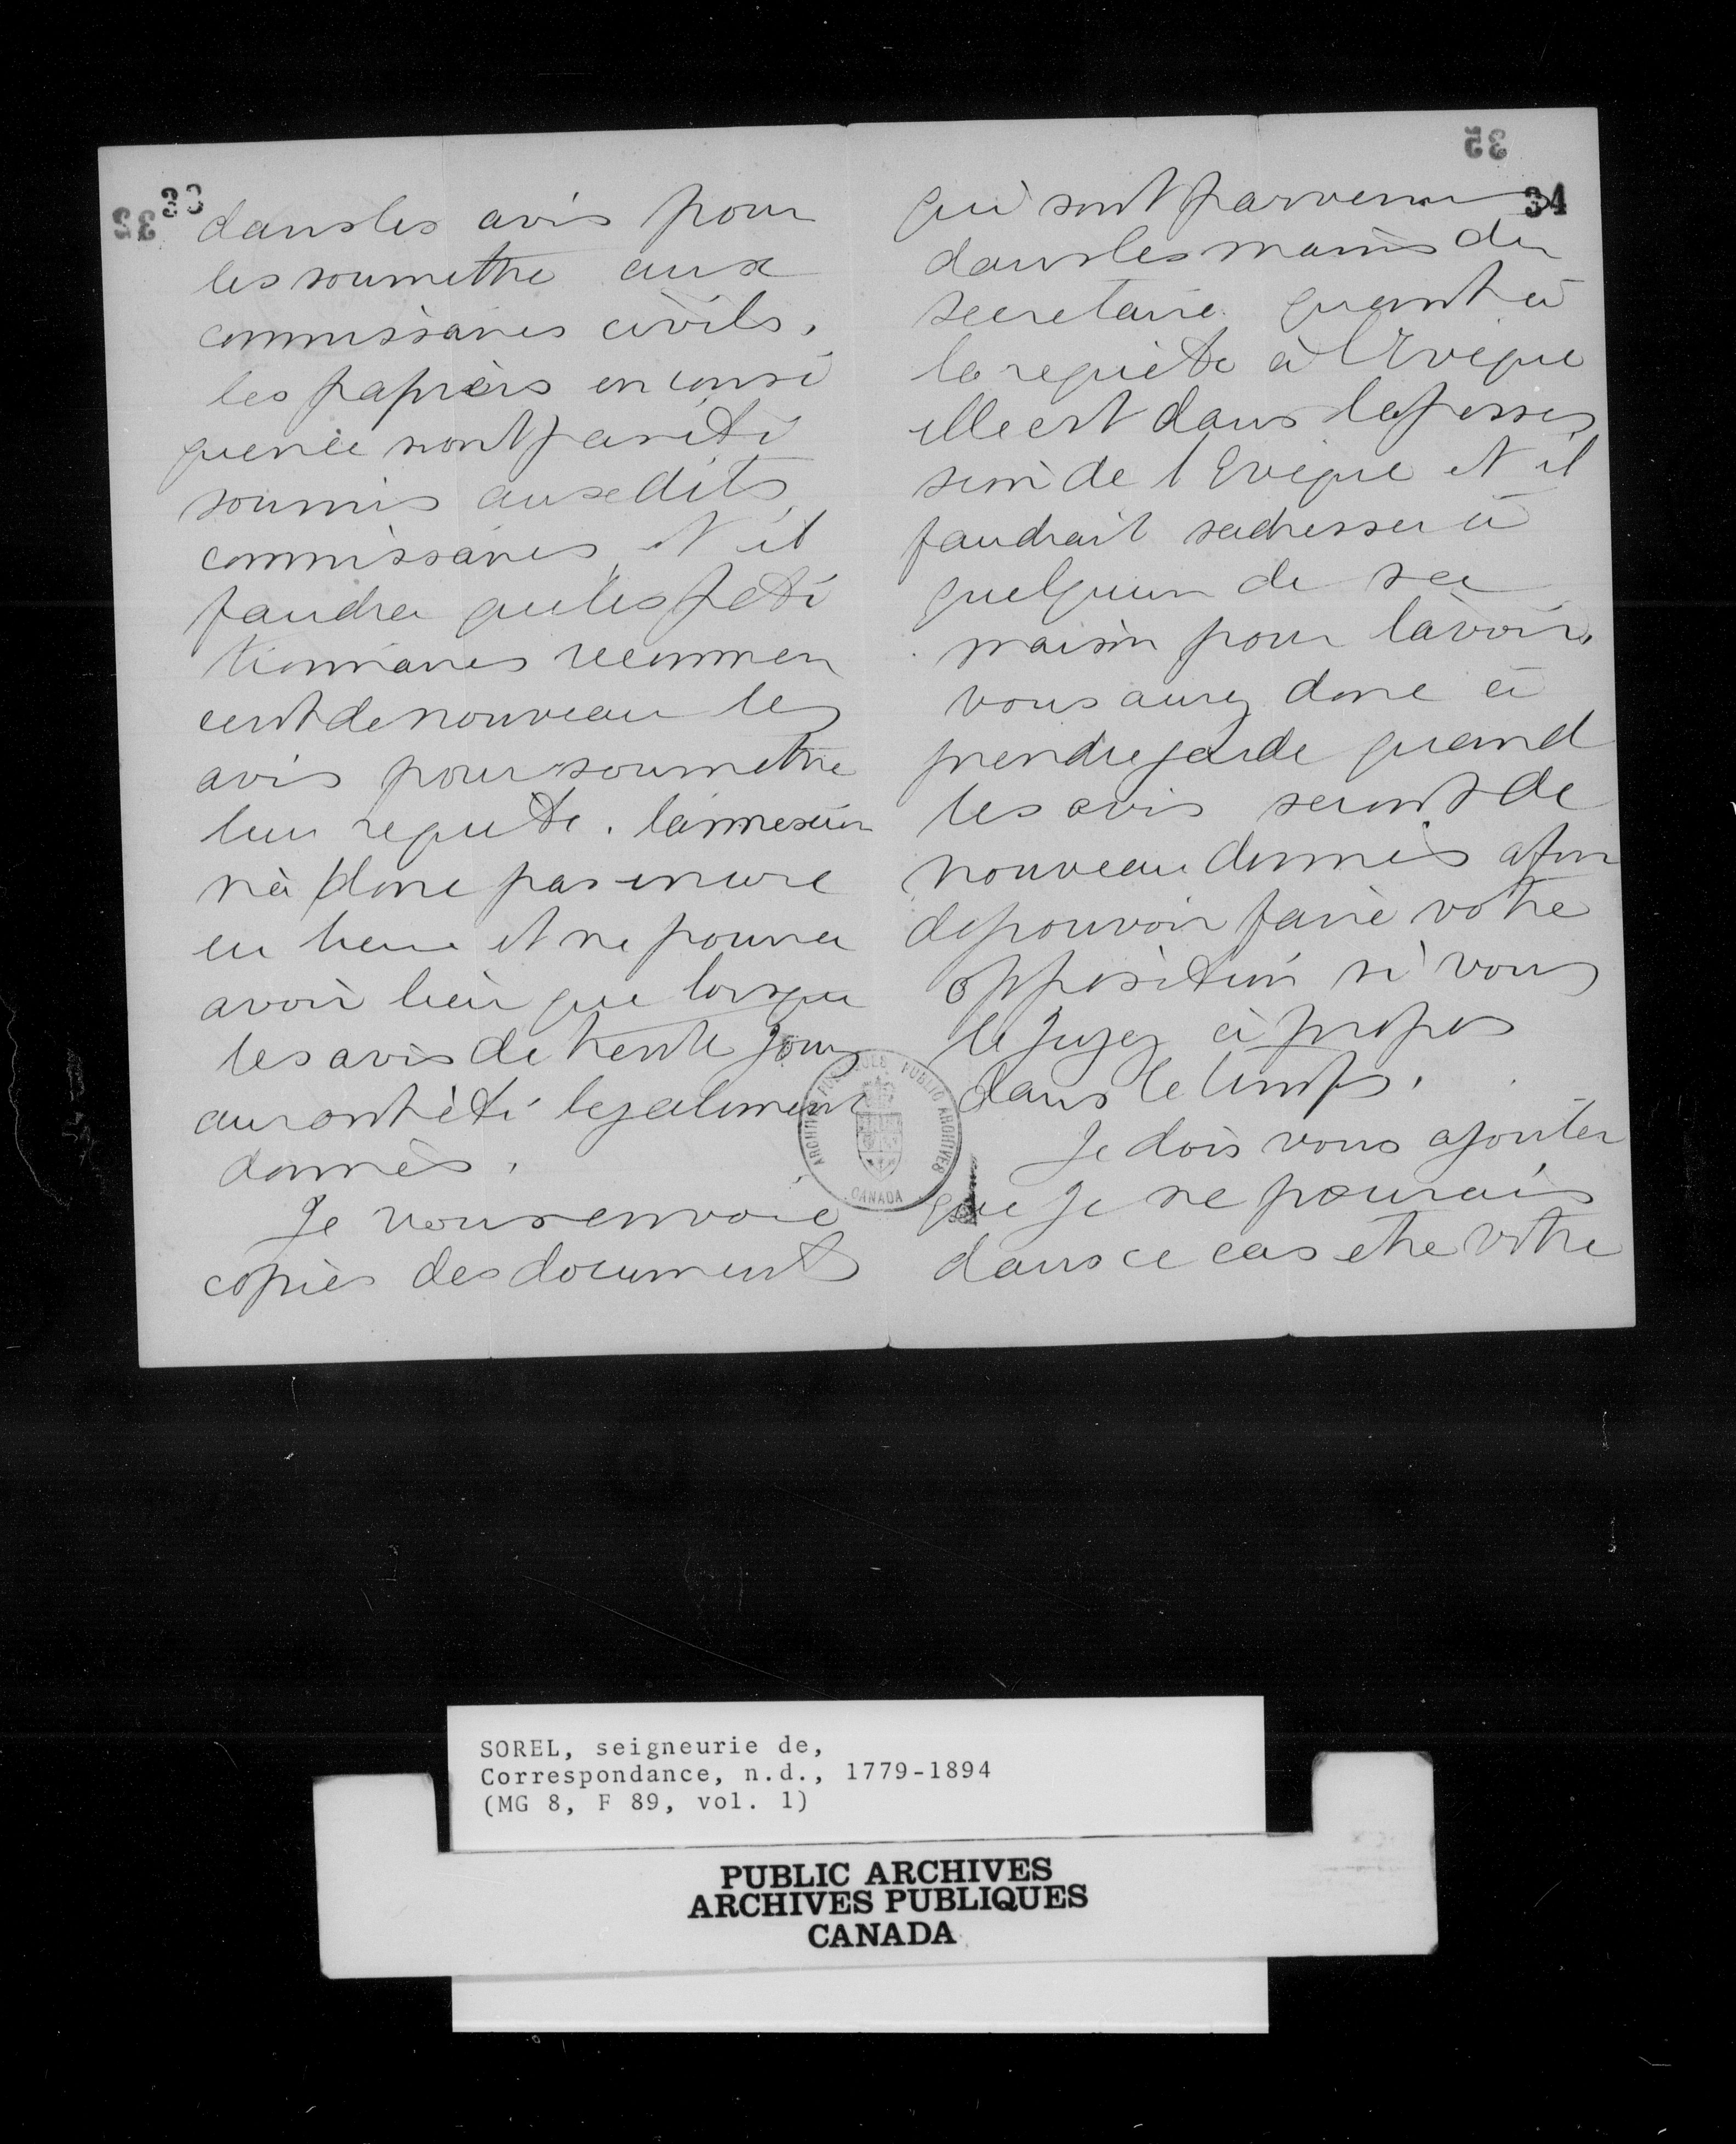 33
32
dans les avis pour
les soumettre aux
commissaires civils.
les papiers en consé
quence n'ont pas été
soumis aux dits
commissaires, et il
faudra que les péti
tionnaires recommen
cent de nouveau les
avis pour soumettre
leur requête. l'annexion
n'a donc pas encore
eu lieu et ne pourra
avoir lieu que lorsque
les avis de trente jours
auront été légalement
donnés.
Je vous envoie
copies des documents
35
34
qui sont parvenus
dans les mains du
secretaire. quant à
la requête à l'Evêque
elle est dans la posses
sion de l'Evêque et il
faudrait s'adresser à
quelqu'un de sa
maison pour l'avoir.
vous aurez donc à
prendre garde quand
les avis seront de
nouveau donnés afin
de pouvoir faire votre
opposition si vous
le jugez à propos
dans le temps.
Je dois vous ajouter
que je ne pourais
dans ce cas etre votre
ARCHIVES PUBLIQUES PUBLIC ARCHIVES
CANADA
SOREL, seigneurie de,
Correspondance, n.d., 1779-1894
(MG 8, F 89, vol. 1)
PUBLIC ARCHIVES
ARCHIVES PUBLIQUES
CANADA